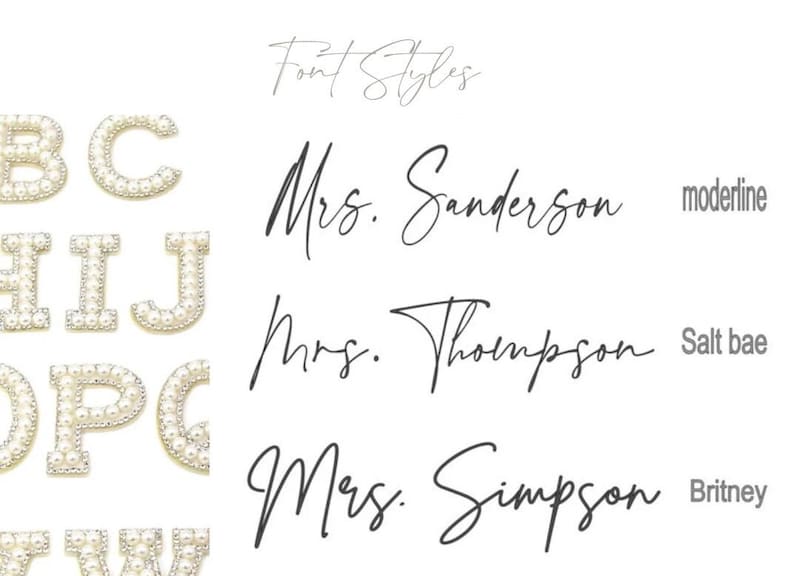 Font Styles
B C
Mrs. Sanderson moderline
H I J
Mrs. Thompson Salt bae
O P Q
Mrs. Simpson Britney
W